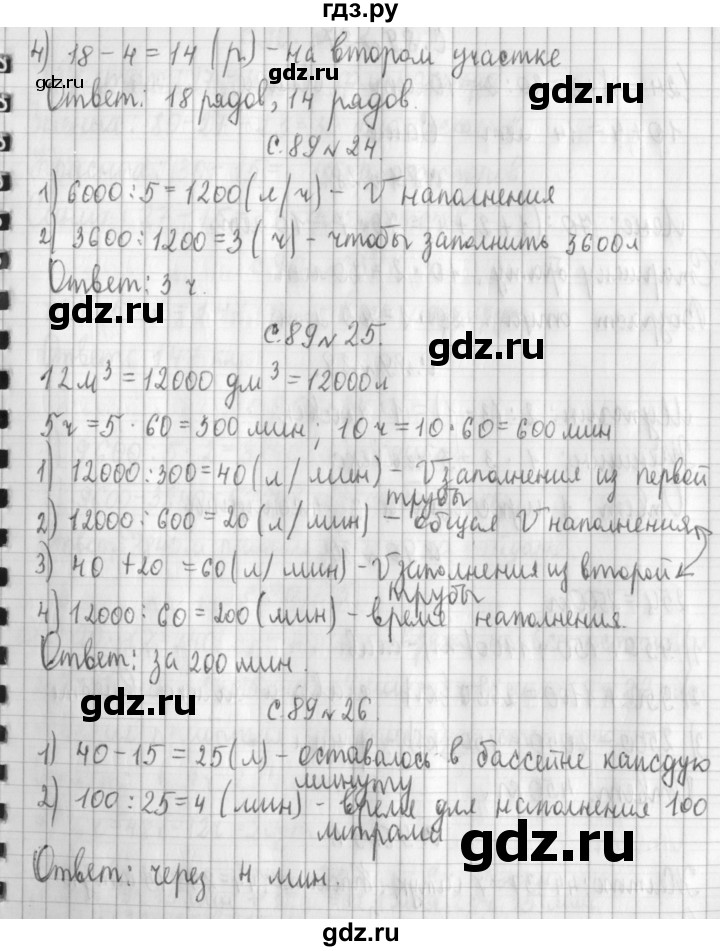 гдз.ру
4) 18 - 4 = 14 (р.) - на втором участке
gdz.ru
gdz.ru
gdz.ru
Ответ: 18 рядов, 14 рядов.
с. 89 № 24.
1) 6000 : 5 = 1200 (л/ч) - V наполнения
2) 3600 : 1200 = 3 (ч) - чтобы заполнить 3600 л
Ответ: 3 ч.
gdz.ru
с. 89 № 25.
gdz.ru
12 м³ = 12000 дм³ = 12000 л
5 ч = 5 · 60 = 300 мин; 10 ч = 10 · 60 = 600 мин
1) 12000 : 300 = 40 (л/мин) - V заполнения из первой
трубы
2) 12000 : 600 = 20 (л/мин) - общая V наполнения
3) 40 + 20 = 60 (л/мин) - V заполнения из второй
трубы
4) 12000 : 60 = 200 (мин) - время наполнения.
Ответ: за 200 мин.
gdz.ru
gdz.ru
с. 89 № 26.
1) 40 - 15 = 25 (л) - оставалось в бассейне каждую
минуту
2) 100 : 25 = 4 (мин) - время для наполнения 100
литрами
gdz.ru
Ответ: через 4 мин.
gdz.ru
gdz.ru